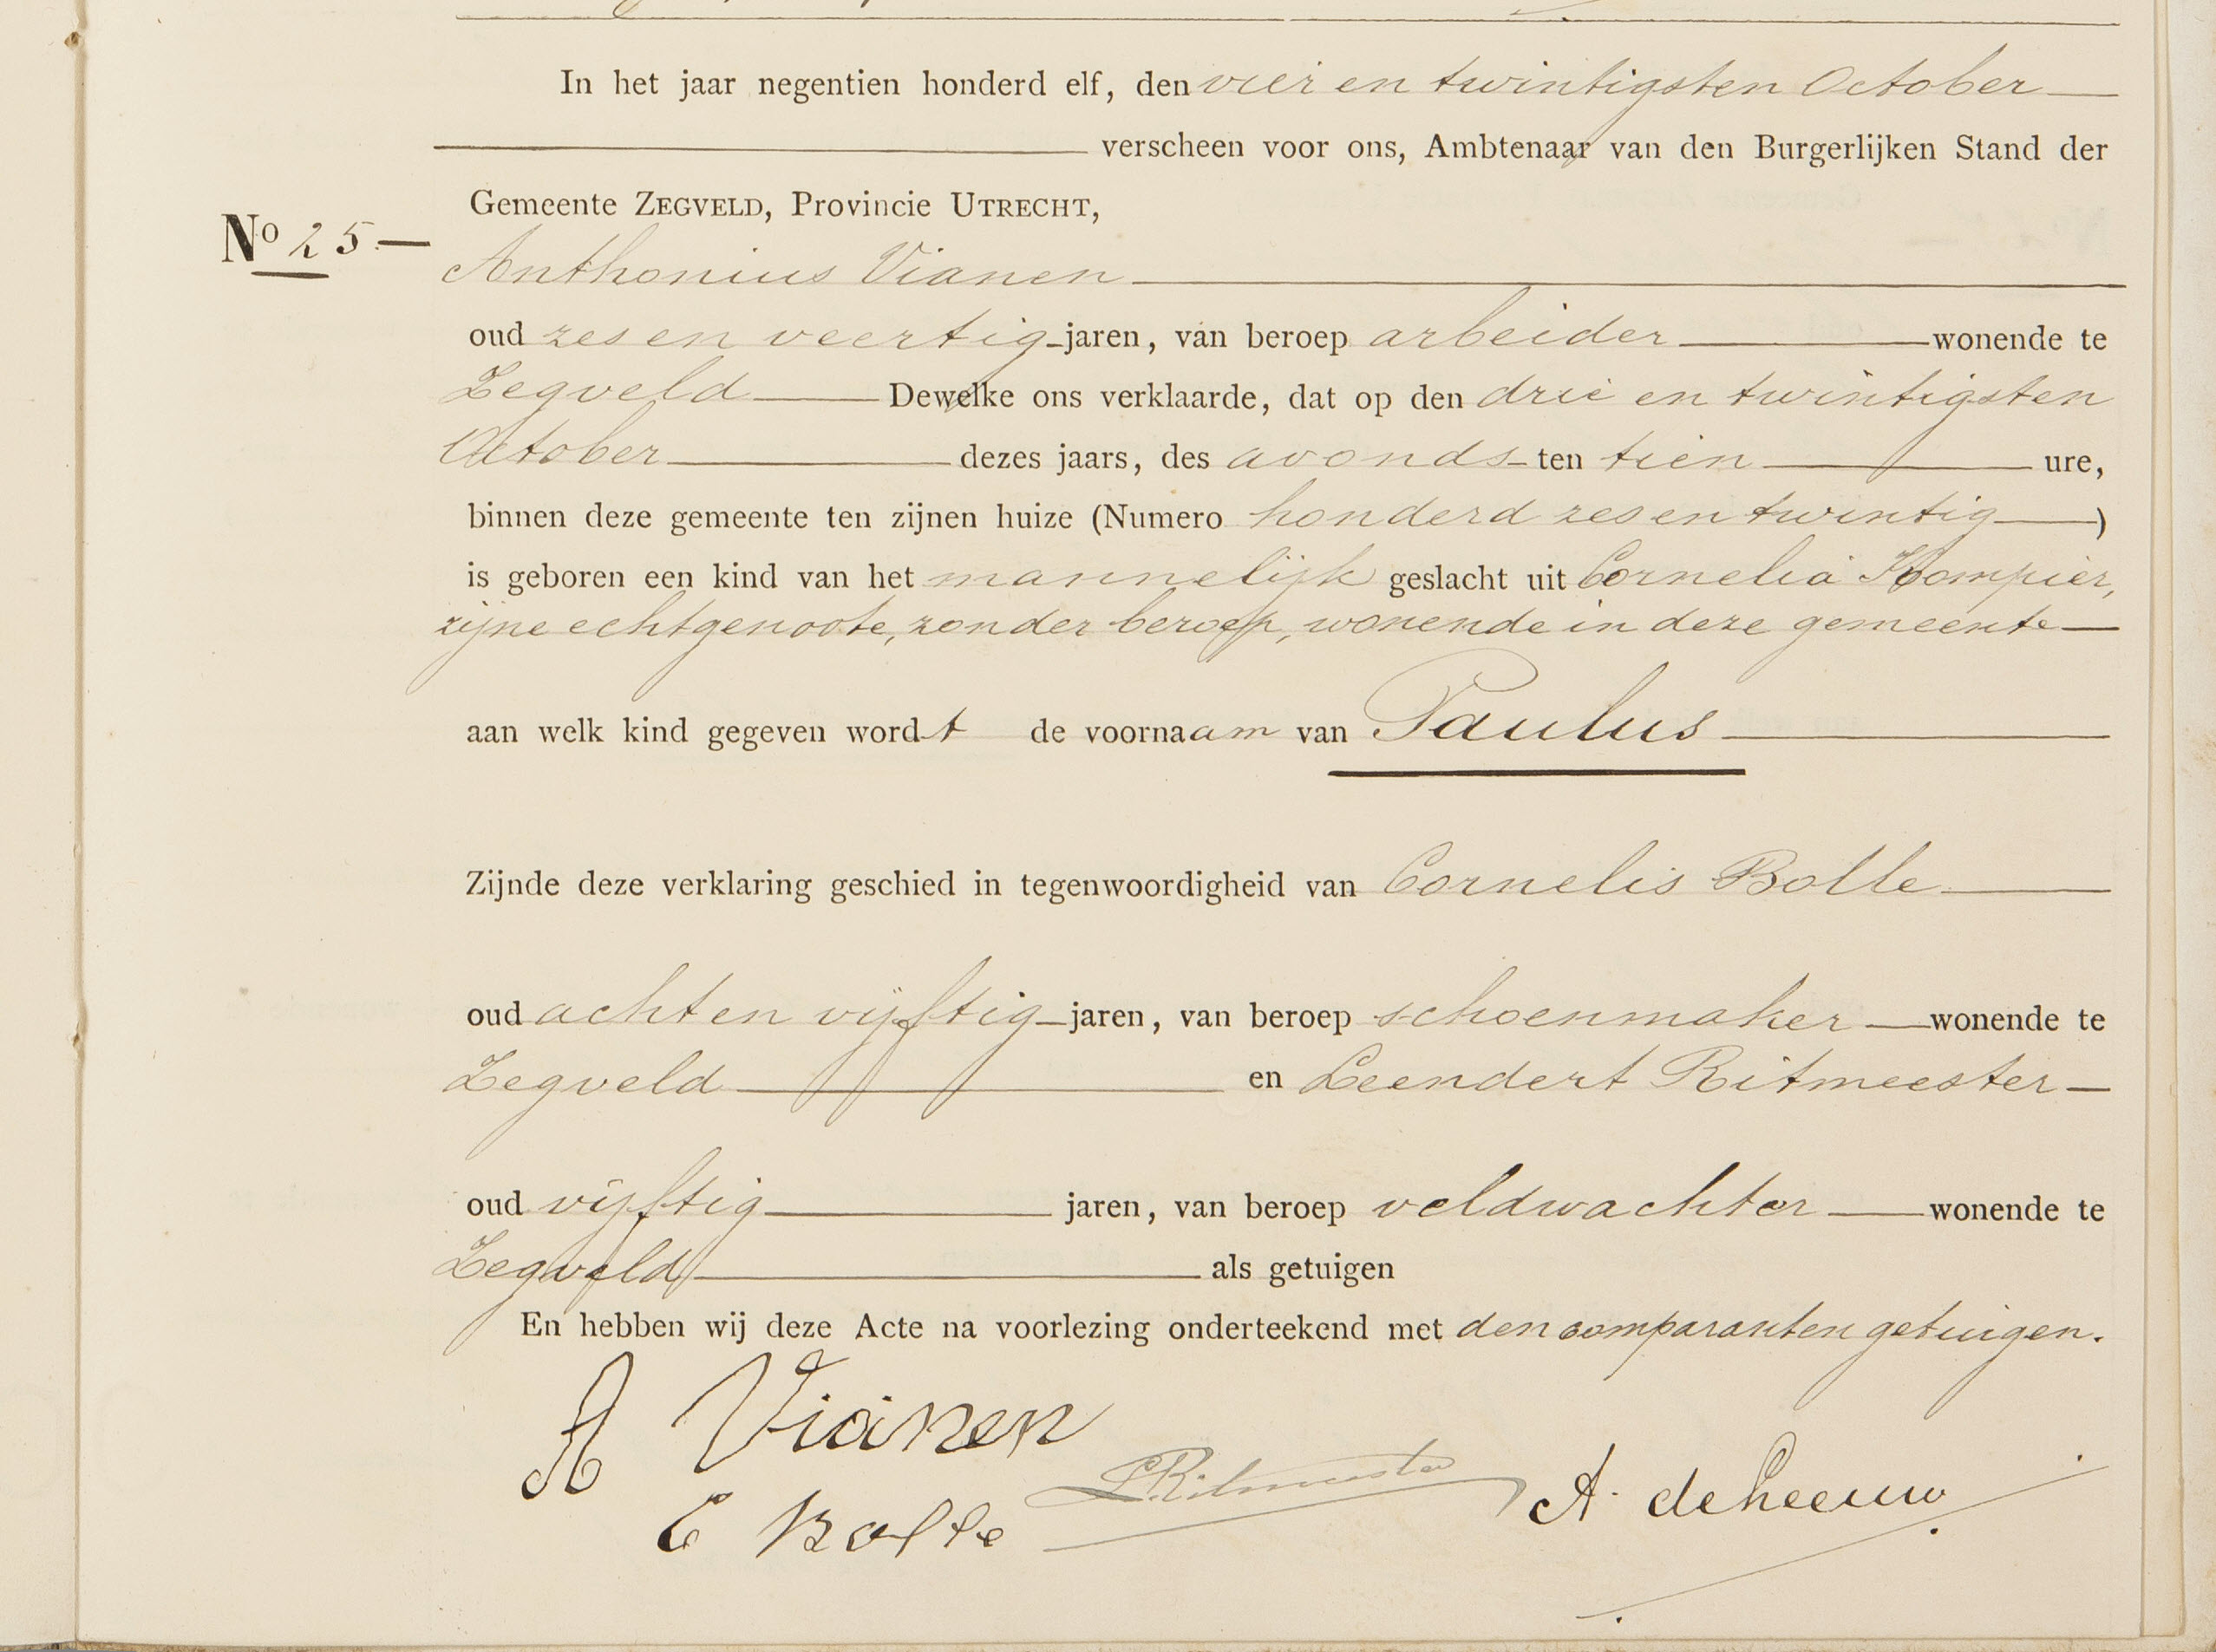 In het jaar negentien honderd elf, den vier en twintigsten October
verscheen voor ons, Ambtenaar van den Burgerlijken Stand der
Gemeente ZEGVELD, Provincie UTRECHT,
No 25
Anthonius Vianen
oud zes en veertig jaren, van beroep arbeider wonende te
Zegveld Dewelke ons verklaarde, dat op den drie en twintigsten
October dezes jaars, des avonds ten tien ure,
binnen deze gemeente ten zijnen huize (Numero honderd zes en twintig)
is geboren een kind van het mannelijk geslacht uit Cornelia Kompier,
zijne echtgenoote, zonder beroep, wonende in deze gemeente
aan welk kind gegeven wordt de voornaam van Paulus
Zijnde deze verklaring geschied in tegenwoordigheid van Cornelis Bolle
oud acht en vijftig jaren, van beroep schoenmaker wonende te
Zegveld en Leendert Ritmeester
oud vijftig jaren, van beroep veldwachter wonende te
Zegveld als getuigen
En hebben wij deze Acte na voorlezing onderteekend met den comparant en getuigen.
A Vianen
LRitmeester A. de Leeuw
C Bolle